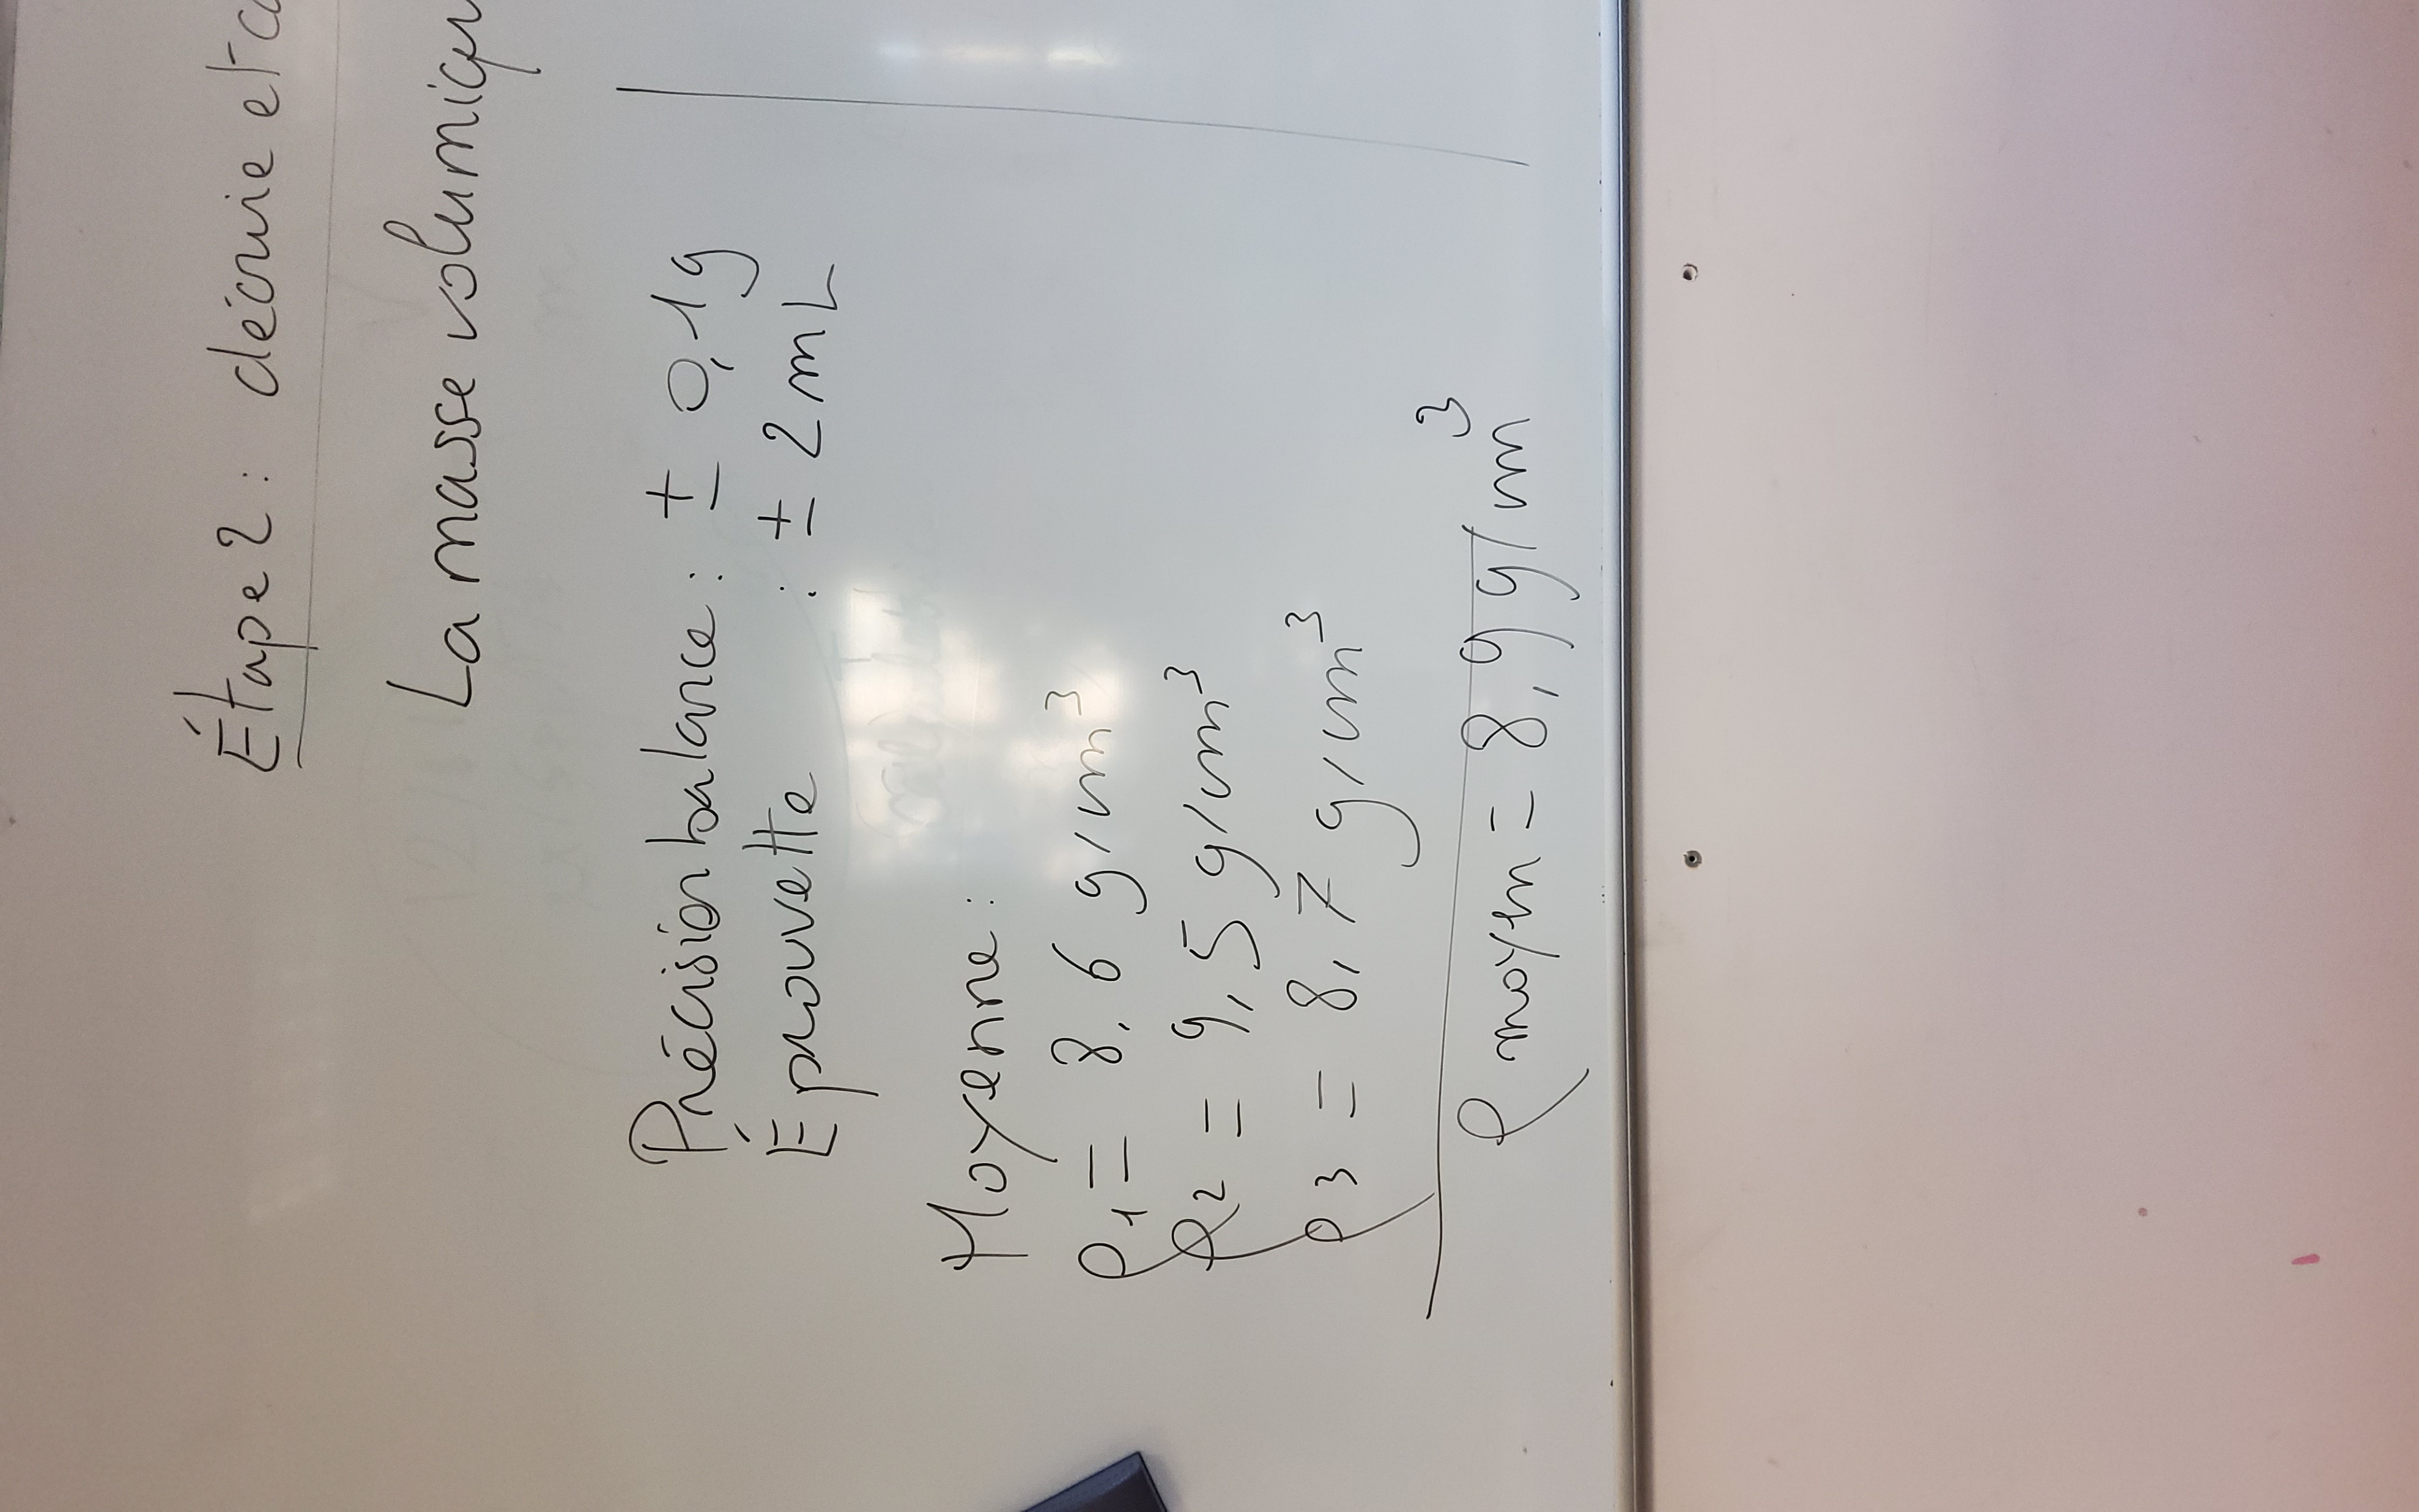 Étape 2 : décrire et
La masse volumiqu
Précision balance : ± 0,1g
Éprouvette : ± 2 mL
Moyenne :
ρ1 = 8,6 g/cm³
ρ2 = 9,5 g/cm³
ρ3 = 8,7 g/cm³
ρmoyen = 8,9 g/cm³